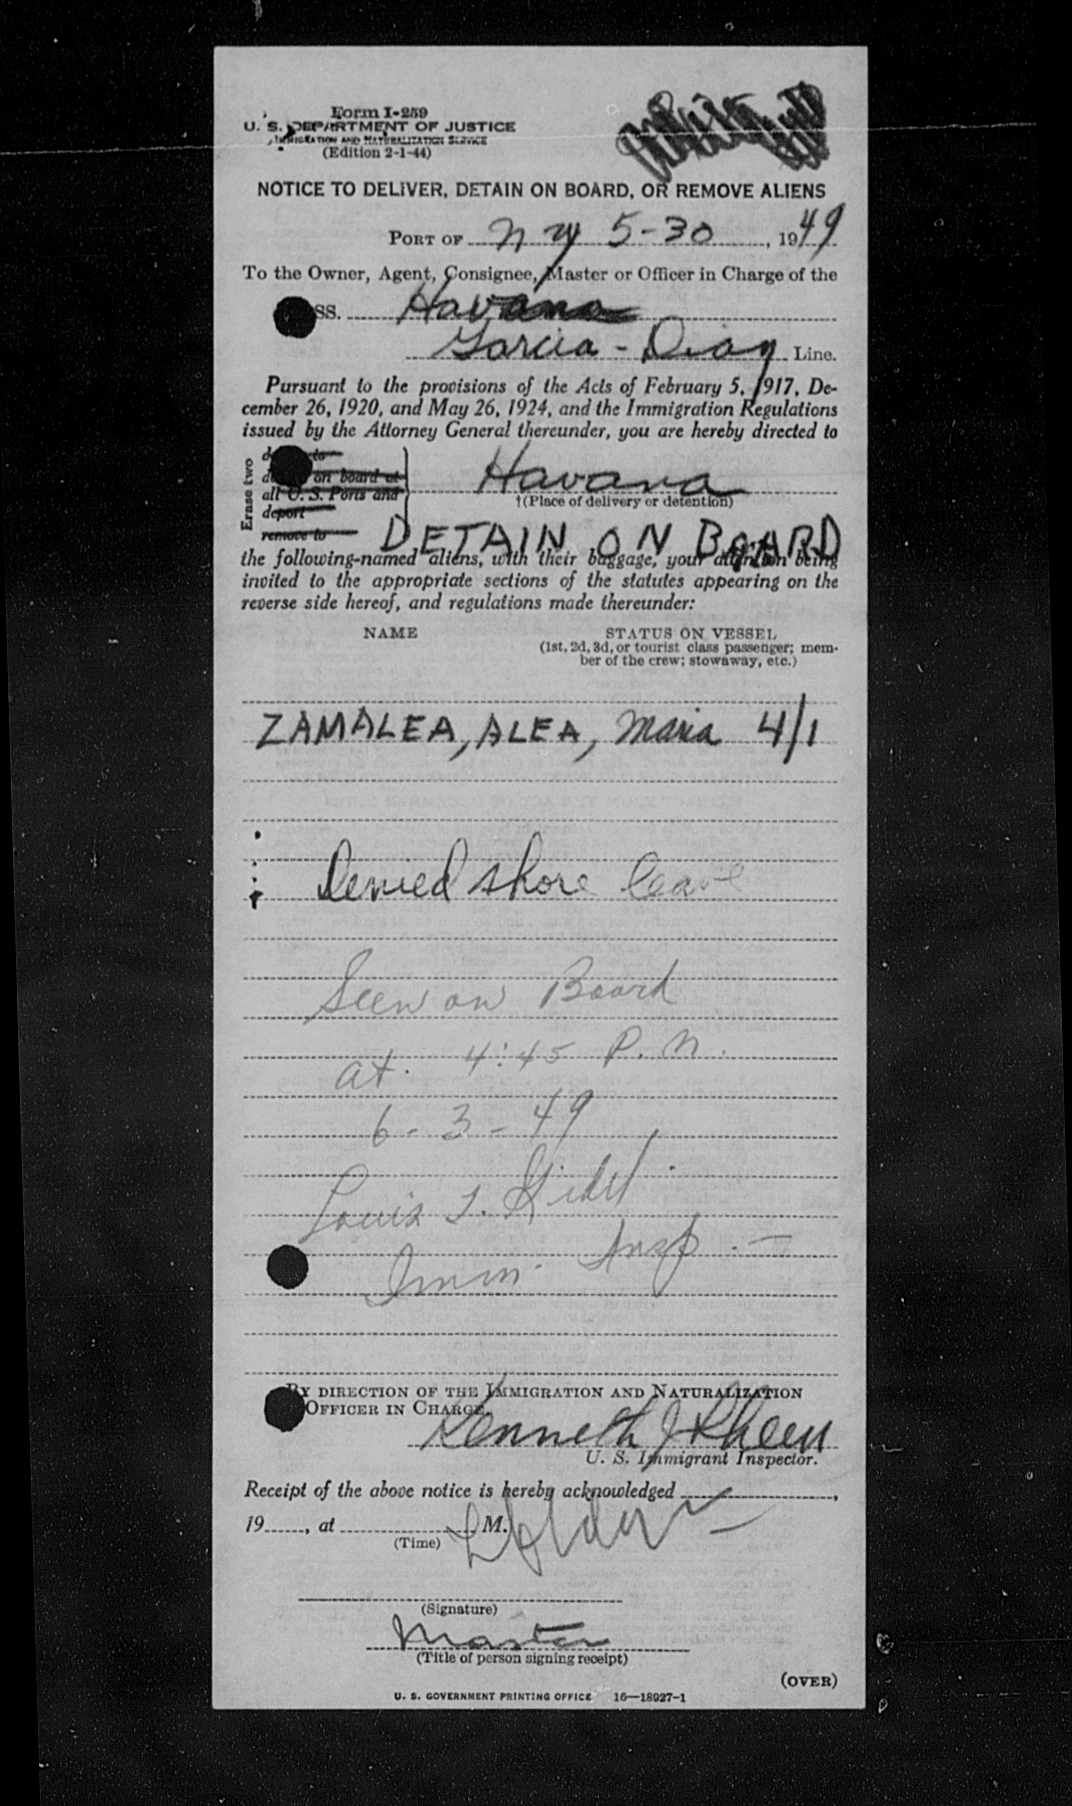 Form I-259
U. S. DEPARTMENT OF JUSTICE
IMMIGRATION AND NATURALIZATION SERVICE
(Edition 2-1-44)
NOTICE TO DELIVER, DETAIN ON BOARD, OR REMOVE ALIENS
PORT OF N Y 5-30, 1949
To the Owner, Agent, Consignee, Master or Officer in Charge of the
SS. Havana
Garcia - Diaz Line.
Pursuant to the provisions of the Acts of February 5, 1917, De-
cember 26, 1920, and May 26, 1924, and the Immigration Regulations
issued by the Attorney General thereunder, you are hereby directed to
Erase two
on board at
all U. S. Ports and
deport
remove to
Havana
†(Place of delivery or detention)
DETAIN ON BOARD
the following-named aliens, with their baggage, your attention being
invited to the appropriate sections of the statutes appearing on the
reverse side hereof, and regulations made thereunder:
NAME STATUS ON VESSEL
(1st, 2d, 3d, or tourist class passenger; mem-
ber of the crew; stowaway, etc.)
ZAMALEA, ALEA, Maria 4/1
Denied shore leave
Seen on Board
at 4:45 P.M.
6-3-49
Louis
Imm. Insp.
BY DIRECTION OF THE IMMIGRATION AND NATURALIZATION
OFFICER IN CHARGE.
Kenneth J
U. S. Immigrant Inspector.
Receipt of the above notice is hereby acknowledged ,
19 , at M.
(Time)
(Signature)
Master
(Title of person signing receipt)
(OVER)
U. S. GOVERNMENT PRINTING OFFICE 16—18027-1